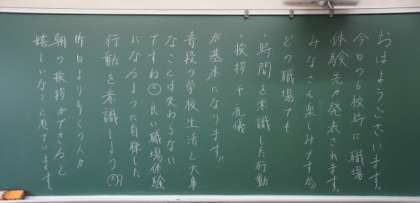 おはようございます。
今日の6校時に職場
体験先が発表されます。
みなさん楽しみですか。
どの職場でも
・時間を意識した行動
・挨拶・礼儀
が基本になります。
普段の学校生活と大事
なことは変わらない
ですね。良い職場体験
になるように自律した
行動を意識しよう
昨日より多くの人が
朝の挨拶ができると
嬉しいなと思っています。